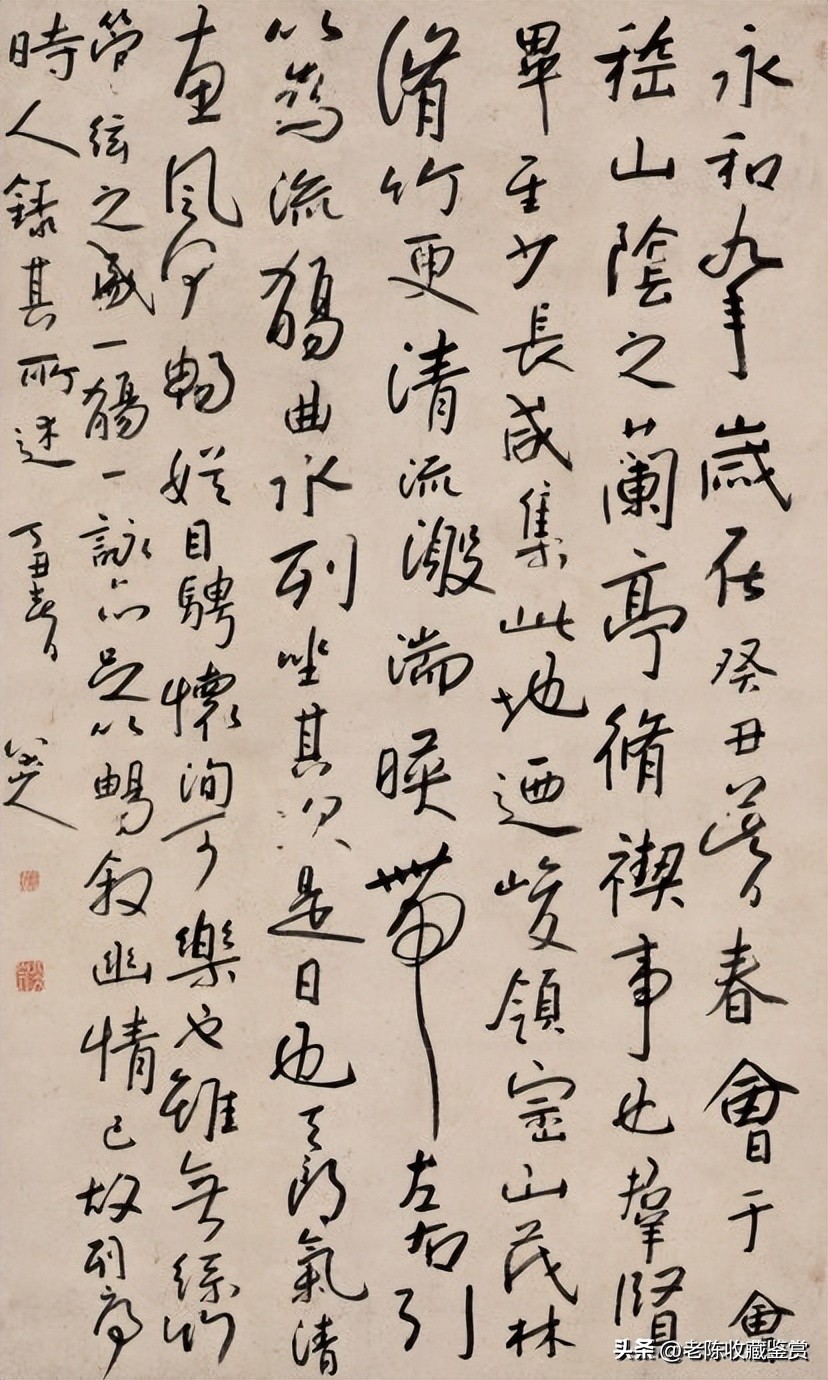 永和九年歲在癸丑暮春會于會
稽山陰之蘭亭脩禊事也羣賢
畢至少長咸集此地迺峻領崇山茂林
脩竹更清流激湍暎帶左右引
以為流觴曲水列坐其次是日也天朗氣清
惠風和暢娛目騁懷洵可樂也雖無絲竹
管絃之盛一觴一詠亦足以暢敘幽情已故列序
時人錄其所述 丁丑春日 八大山人
头条 @老陈收藏鉴赏